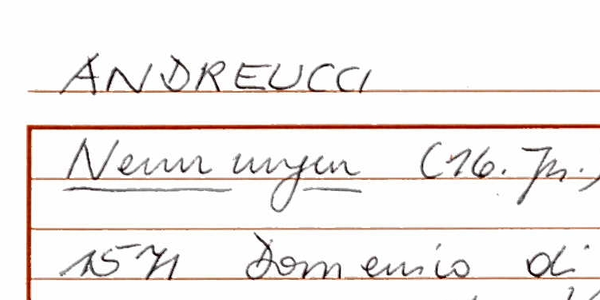 ANDREUCCI
Nennungen (16. Jh.)
1571 Domenico di